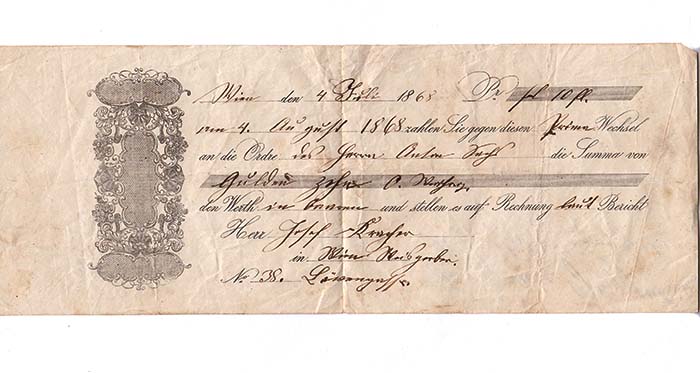 Wien den 4 Juli 1868 Pr. fl 10 fl.
am 4. August 1868 zahlen Sie gegen diesen Prima Wechsel
an die Ordre des Herrn Anton die Summa von
Gulden zehn Ö. Währg.
den Werth in baarem und stellen es auf Rechnung laut Bericht
Herr Josef
in Wien Weisgerber.
No 38. Löwengasse